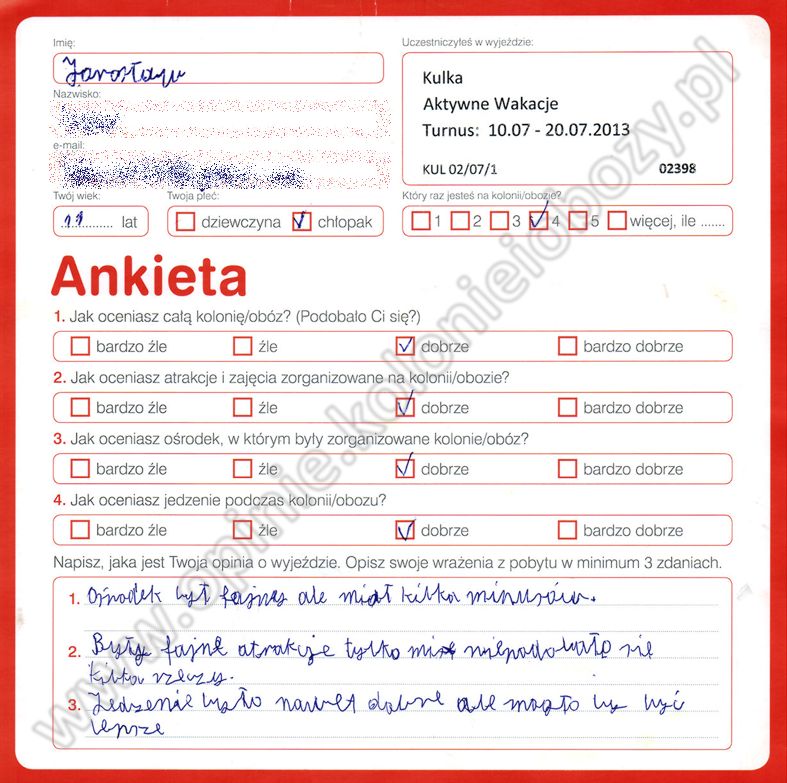 Imię:
Jarosław
Uczestniczyłeś w wyjeździe:
Kulka
Aktywne Wakacje
Turnus: 10.07 - 20.07.2013
KUL 02/07/1 02398
Nazwisko:
e-mail:
Twój wiek:
11 lat
Twoja płeć:
dziewczyna chłopak
Który raz jesteś na kolonii/obozie?
1 2 3 4 5 więcej, ile .......
Ankieta
1. Jak oceniasz całą kolonię/obóz? (Podobało Ci się?)
bardzo źle źle dobrze bardzo dobrze
2. Jak oceniasz atrakcje i zajęcia zorganizowane na kolonii/obozie?
bardzo źle źle dobrze bardzo dobrze
3. Jak oceniasz ośrodek, w którym były zorganizowane kolonie/obóz?
bardzo źle źle dobrze bardzo dobrze
4. Jak oceniasz jedzenie podczas kolonii/obozu?
bardzo źle źle dobrze bardzo dobrze
Napisz, jaka jest Twoja opinia o wyjeździe. Opisz swoje wrażenia z pobytu w minimum 3 zdaniach.
1. Ośrodek był fajny ale miał kilka minusów.
2. Były fajne atrakcje tylko niepodobało się
kilka rzeczy.
3. Jedzenie było nawet dobre ale mogło by być
lepsze
www.opinie.kolonieiobozy.pl